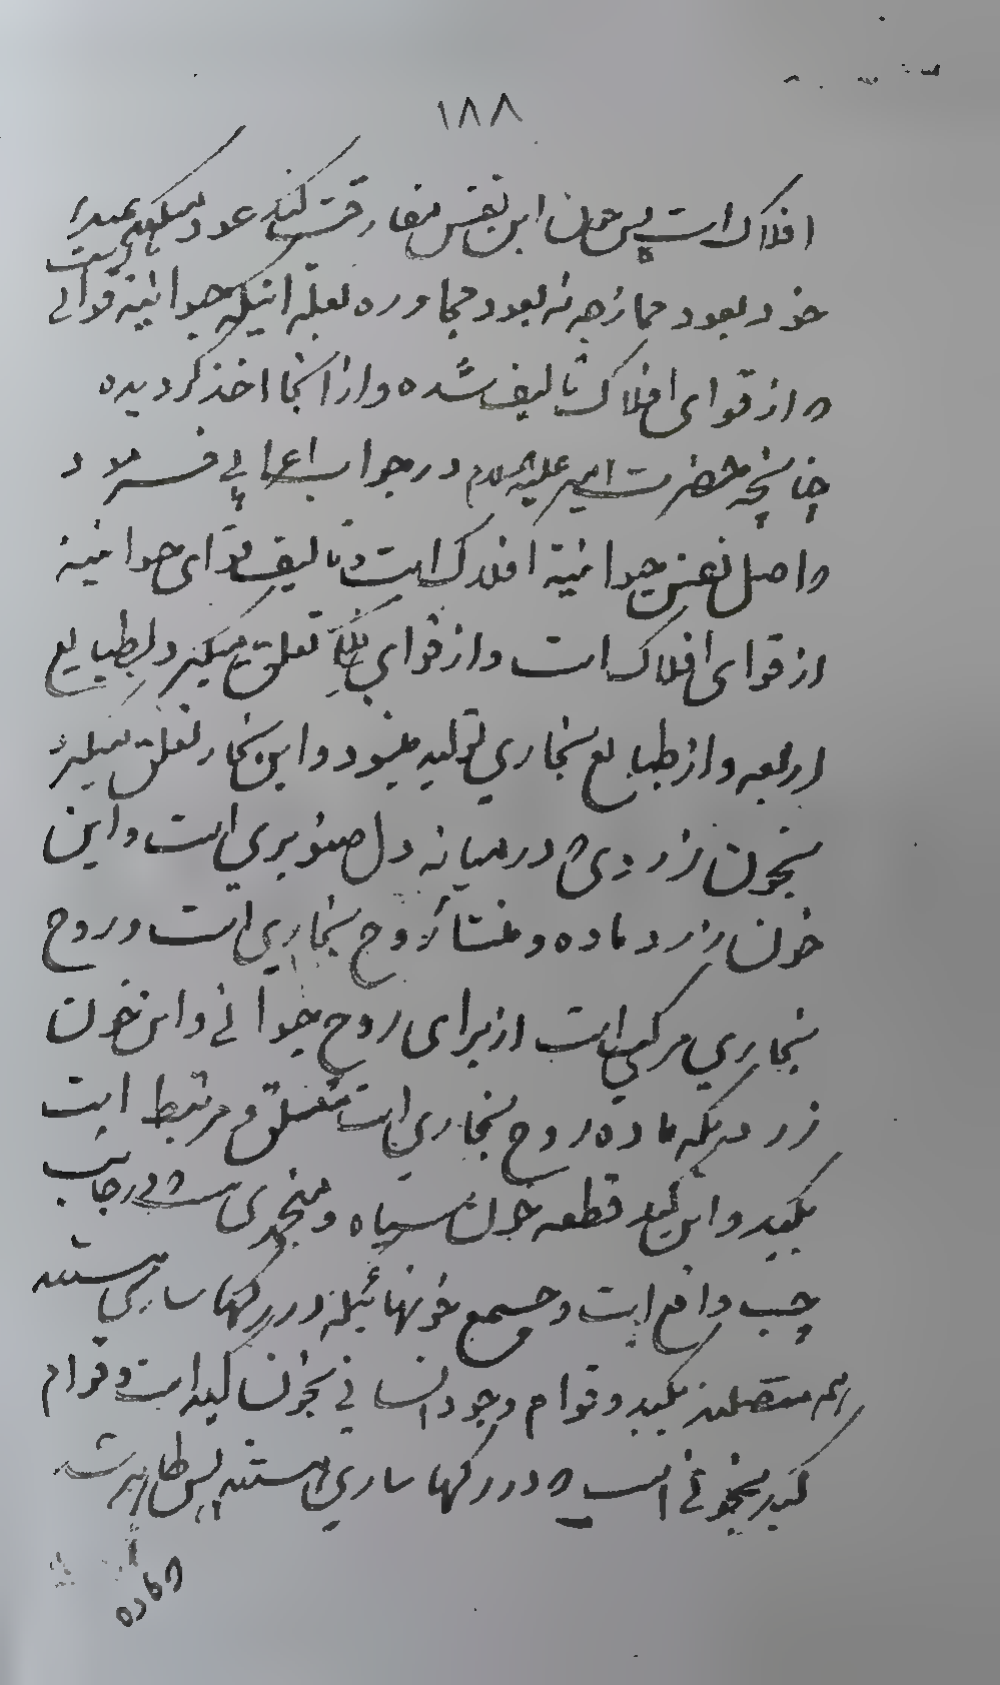 ۱۸۸
افلاک است پس چون این نفس مفارقت کند عود میکند بمبدء
خود بعود ممازجه نه بعود مجاوره بعلة اینکه حیوانیة قوای
که از قوای افلاک تالیف شده و از آنجا اخذ کردیده
چنانچه حضرت امیر علیه السلام در جواب اعرابی فرمود
که اصل نفس حیوانیة افلاک است و تالیف قوای حیوانیة
از قوای افلاک است و از قوای فلکیه تعلق میکیرد بطبایع
اربعه و از طبایع بخاری تولید میشود و این بخار تعلق میکیرد
بخون زردی که در میانه دل صنوبری است و این
خون زرد ماده و منشأ روح بخاری است و روح
بخاری مرکب است از برای روح حیوانی و این خون
زردیکه ماده روح بخاری است متعلق و مرتبط است
بکبد و این کبد قطعه خون سیاه و منجمدی است که در جانب
چپ واقع است و جمیع خونهائیکه در رکها ساری هستند
هم متصلند بکبد و قوام وجود انسانی بخون کبد است و قوام
کبد بخونی است که در رکها ساری هستند پس ظاهر شد
که ماده